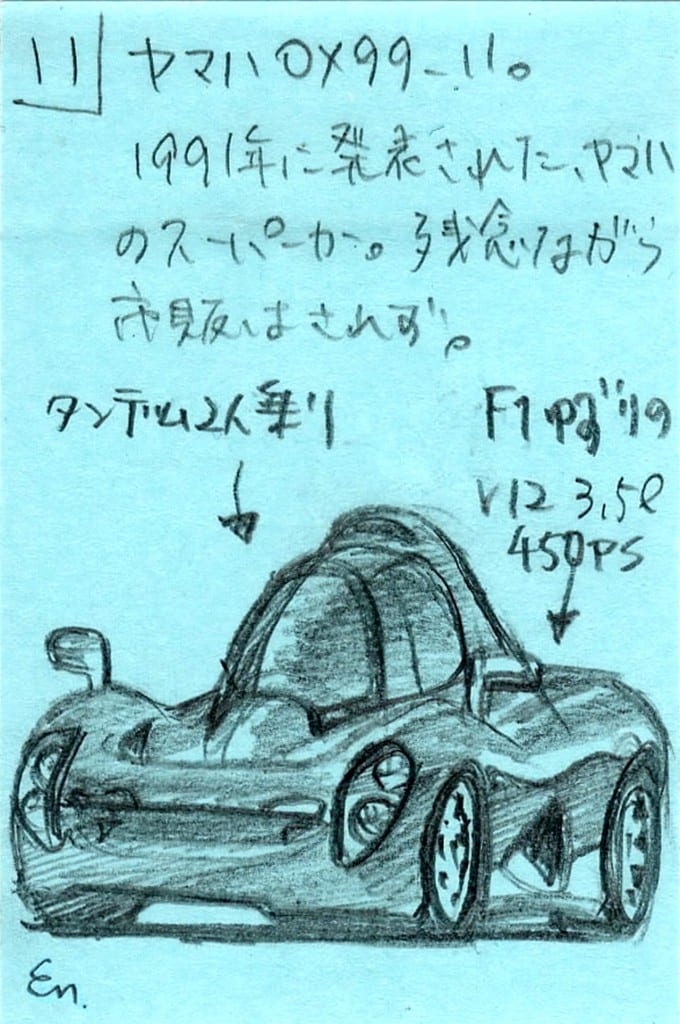 11
ヤマハ OX99-11。
1991年に発表された、ヤマハ
のスーパーカー。残念ながら
市販はされず。
タンデム2人乗り
F1ゆずりの
V12 3.5ℓ
450PS
En.